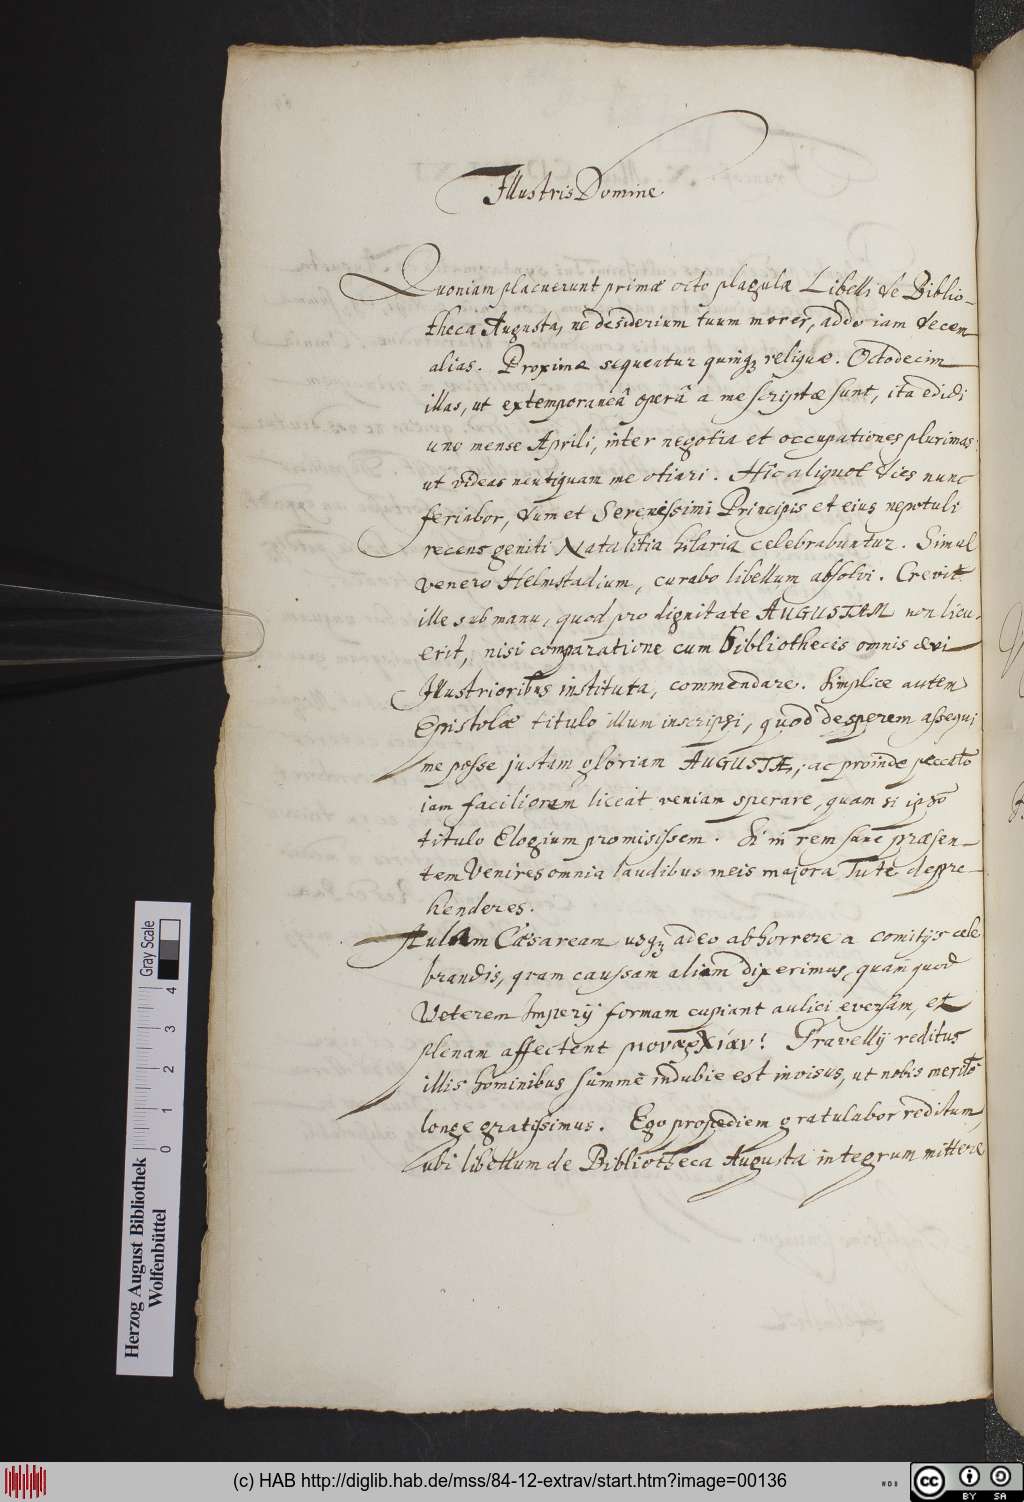 Illustris Domine
Quoniam placuerunt primæ octo plagulæ Libelli de Biblio-
theca Augusta, ne desiderium tuum morer, addo iam decem
alias. Proximæ sequentur quinqꝫ reliquæ. Octodecim
illas, ut extemporaneâ operâ a me scriptæ sunt, ita edidi
uno mense Aprili, inter negotia et occupationes plurimas:
ut videas neutiquam me otiari. Hic aliquot dies nunc
feriabor, dum et Serenissimi Principis et eius nepotuli
recens geniti Natalitia hilaria celebrabuntur. Simul
venero Helmstadium, curabo libellum absolvi. Crevit
ille sub manu, quod pro dignitate AUGUSTAM non licu-
erit, nisi comparatione cum bibliothecis omnis ævi
Illustrioribus instituta, commendare. Simplice autem
Epistolæ titulo illum inscripsi, quod desperem assequi
me posse justam gloriam AUGUSTÆ; ac proinde peccato
iam faciliorem liceat veniam sperare, quam si ipso
titulo Elogium promisissem. Si in rem sane præsen-
tem Venires omnia laudibus meis majora Tute depre-
henderes.
Aulam Cæsaream usqꝫ adeo abhorrere a comitijs cele
brandis, quam caussam aliam dixerimus, quam quod
Veterem Imperij formam cupiant aulici eversam, et
plenam affectent μοναρχίαν! Gravellij reditus
illis hominibus summè indubie est invisus, ut nobis meritò
longe gratissimus. Ego propediem gratulabor reditum,
ubi libellum de Bibliotheca Augusta integrum mittere
Herzog August Bibliothek
Wolfenbüttel
Gray Scale
0 1 2 3 4
(c) HAB http://diglib.hab.de/mss/84-12-extrav/start.htm?image=00136
cc BY SA